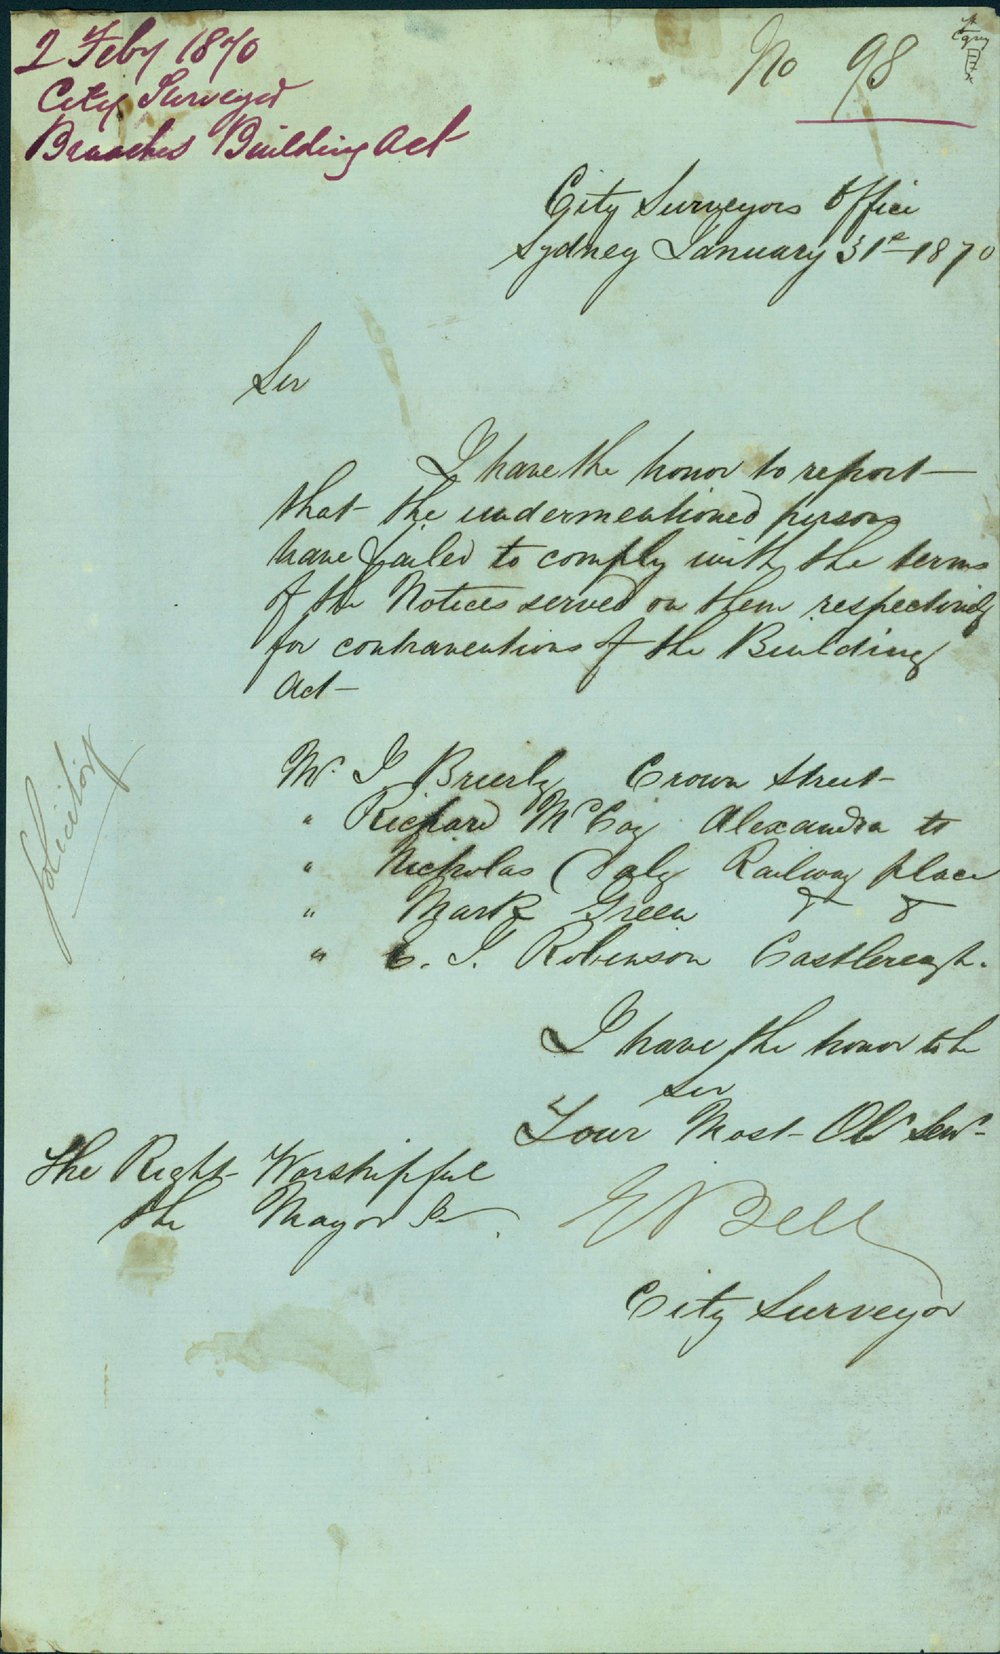 2 Feby 1870
City Surveyor
Breaches Building Act
No 98
City Surveyors Office
Sydney January 31st 1870
Sir
I have the honor to report
that the undermentioned persons
have failed to comply with the terms
of the Notices served on them respectively
for contraventions of the Building
Act —
Mr. J Brierly Crown Street
" Richard McCoy Alexandra st
" Nicholas Daly Railway place
" Mark Green
" E. J. Robinson Castlereagh.
I have the honor to be
Sir
Your Most Obt Servt
E Bell
City Surveyor
The Right Worshipful
the Mayor &c
Solicitor